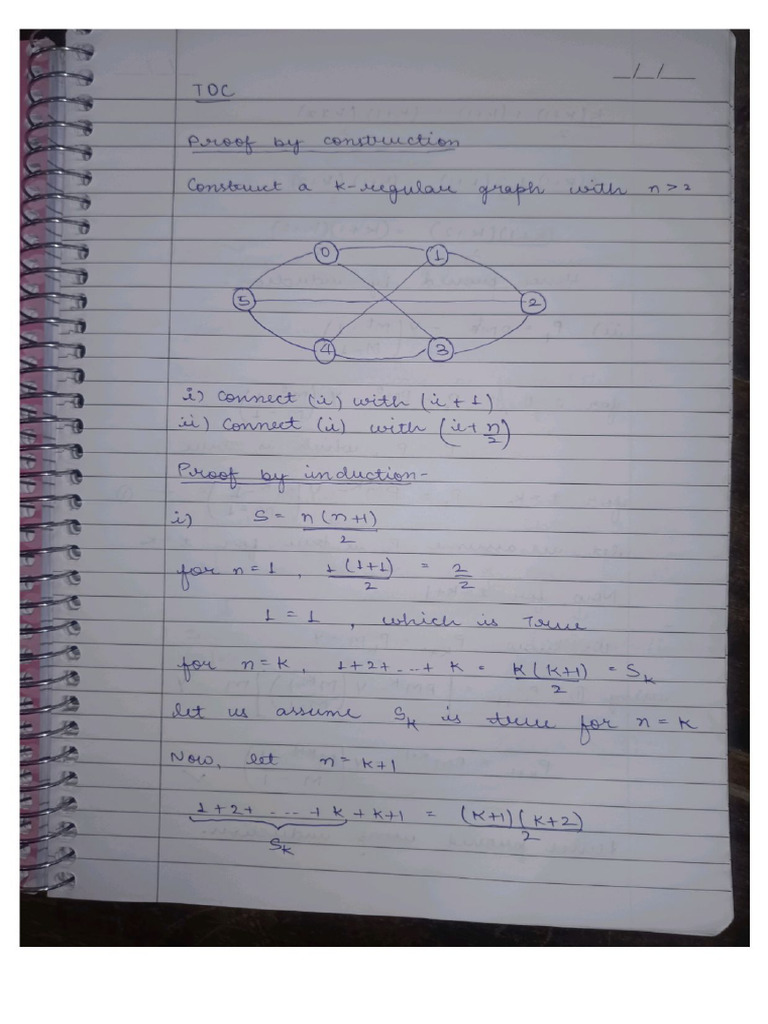 _/_/_
TOC
Proof by construction
Construct a k-regular graph with n>2
0 1
5 2
4 3
i) Connect (i) with (i+1)
ii) Connect (i) with (i+n/2)
Proof by induction-
i) S = n(n+1)/2
for n=1, 1(1+1)/2 = 2/2
1 = 1, which is True
for n=k, 1+2+...+k = k(k+1)/2 = Sk
let us assume Sk is true for n=k
Now, let n=k+1
1+2+....+k+k+1 = (k+1)(k+2)/2
Sk